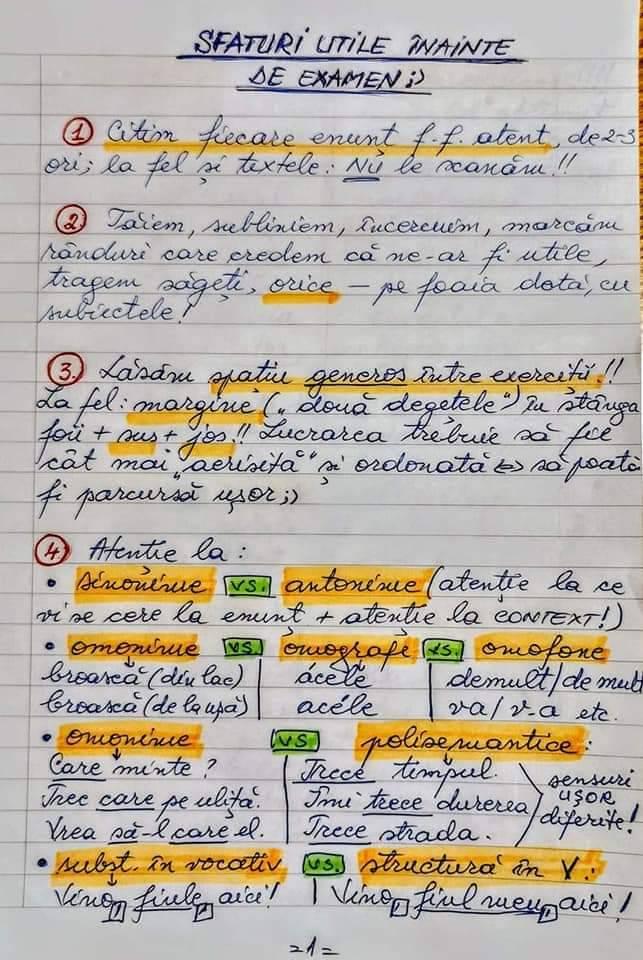 SFATURI UTILE ÎNAINTE
DE EXAMEN ;)
1 Citim fiecare enunț f.f. atent, de 2-3
ori; la fel și textele: NU le scanăm!!
2. Tăiem, subliniem, încercuim, marcăm
rânduri care credem că ne-ar fi utile,
tragem săgeți, orice – pe foaia dată, cu
subiectele!
3. Lăsăm spațiu generos între exerciții!!
La fel: margine („două degetele") în stânga
foii + sus + jos!! Lucrarea trebuie să fie
cât mai „aerisită" și ordonată <=> să poată
fi parcursă ușor ;)
4. Atenție la:
• sinonime vs. antonime (atenție la ce
vi se cere la enunț + atenție la CONTEXT!)
• omonime vs. omografe vs. omofone
broască (din lac) | ácele | demult/de mult
broască (de la ușă) | acéle | va/v-a etc.
• omonime vs polisemantice:
Care minte? | Trece timpul.
Trec care pe uliță. | Îmi trece durerea
Vrea să-l care el. | Trece strada.
sensuri
UȘOR
diferite!
• subst. în vocativ vs. structură în V.:
Vino, fiule, aici! | Vino, fiul meu, aici!
=1=